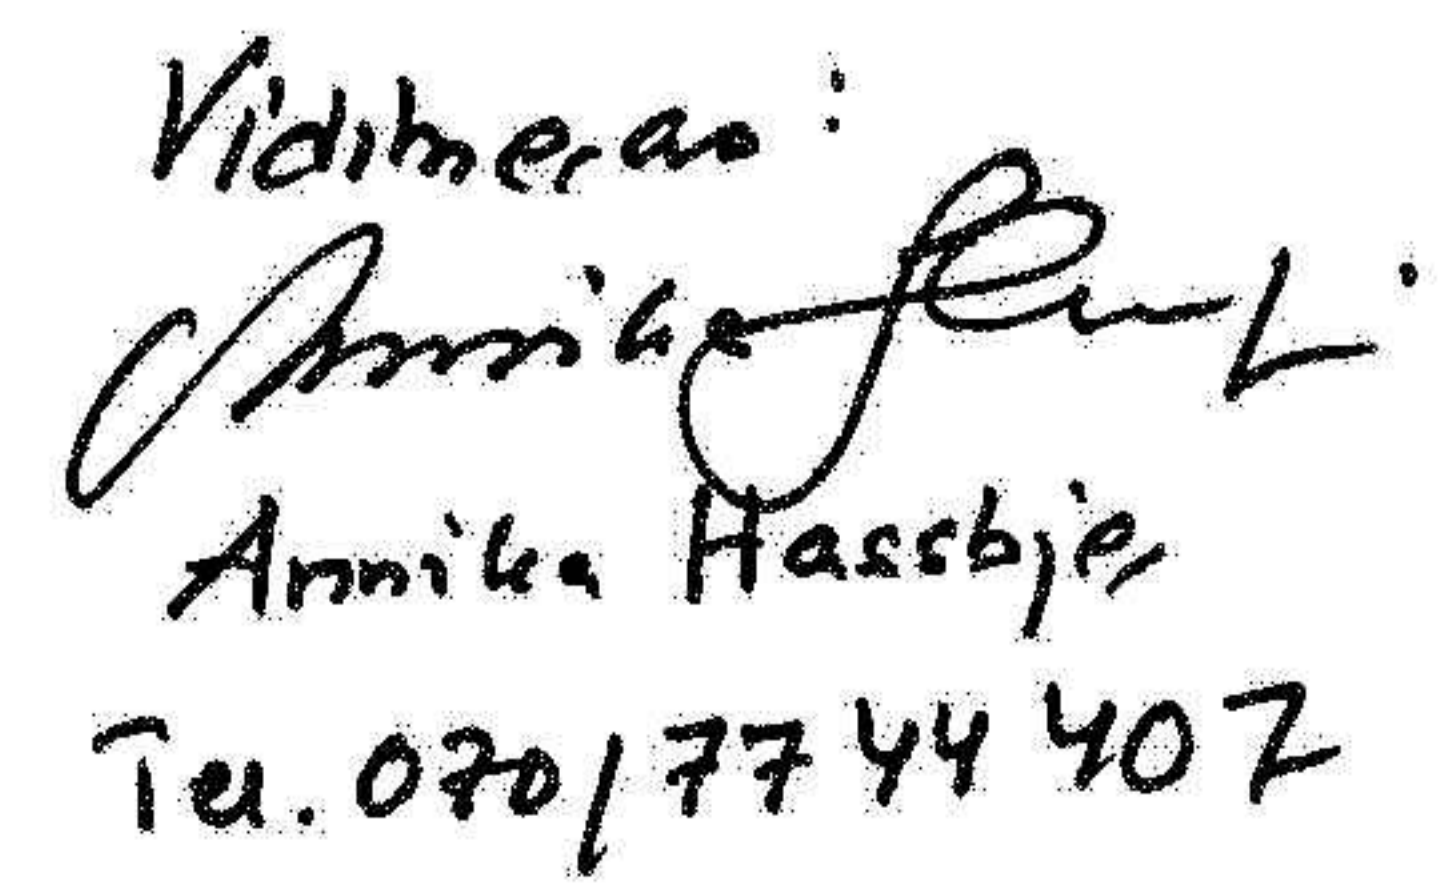 Vidimeras:
Annika
Annika Hassbjer
Tel. 070/77 44 407